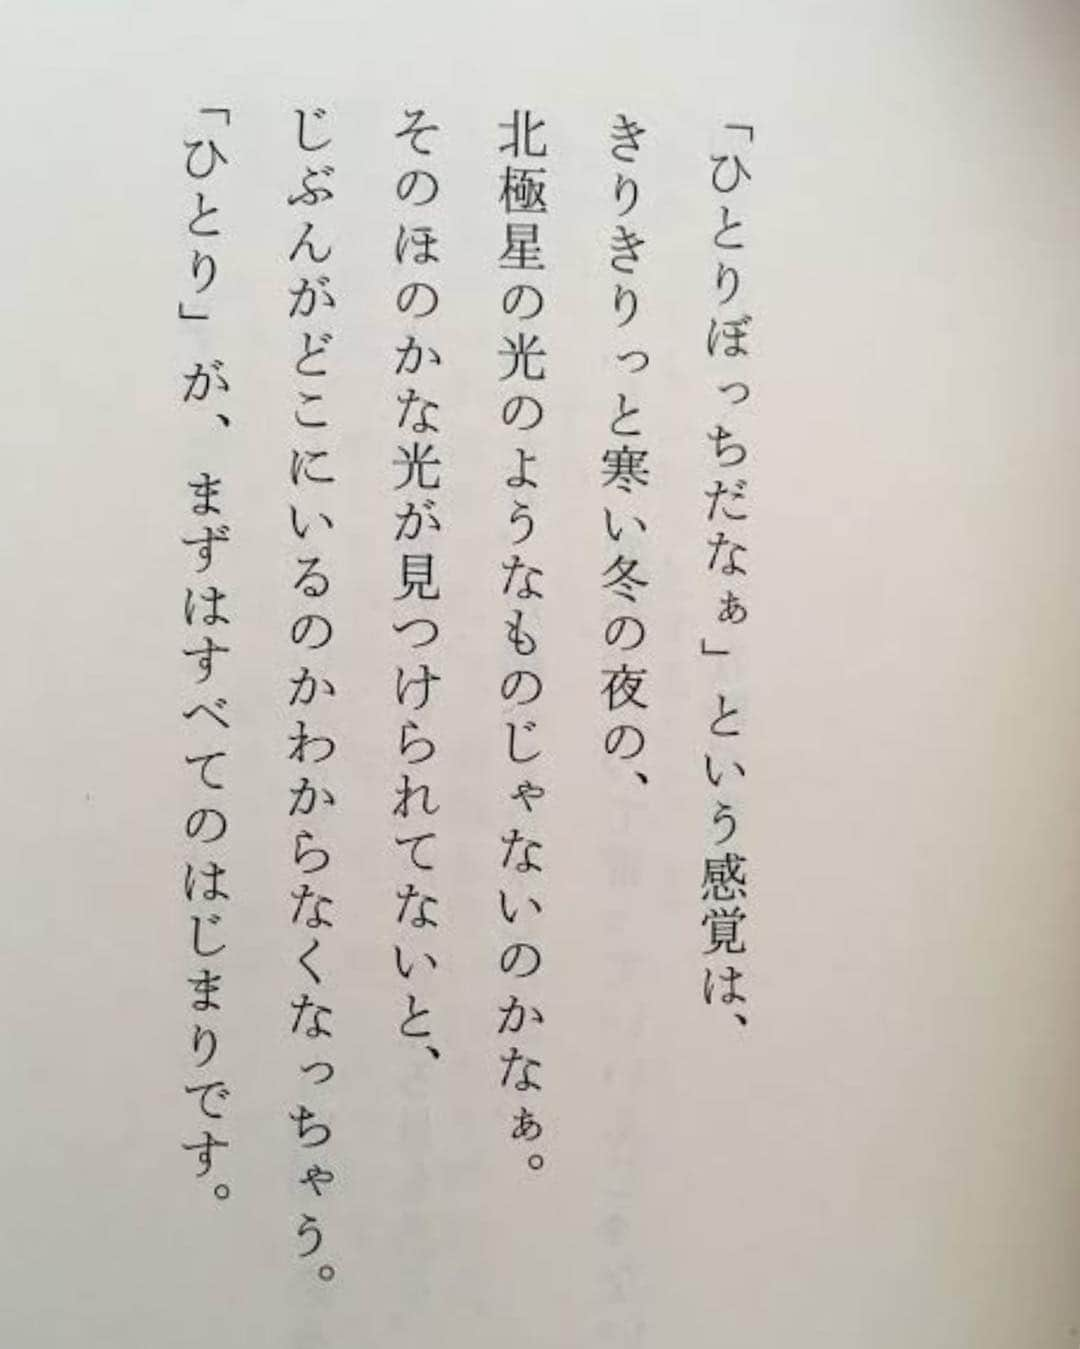 「ひとりぼっちだなぁ」という感覚は、
きりきりっと寒い冬の夜の、
北極星の光のようなものじゃないのかなぁ。
そのほのかな光が見つけられてないと、
じぶんがどこにいるのかわからなくなっちゃう。
「ひとり」が、まずはすべてのはじまりです。